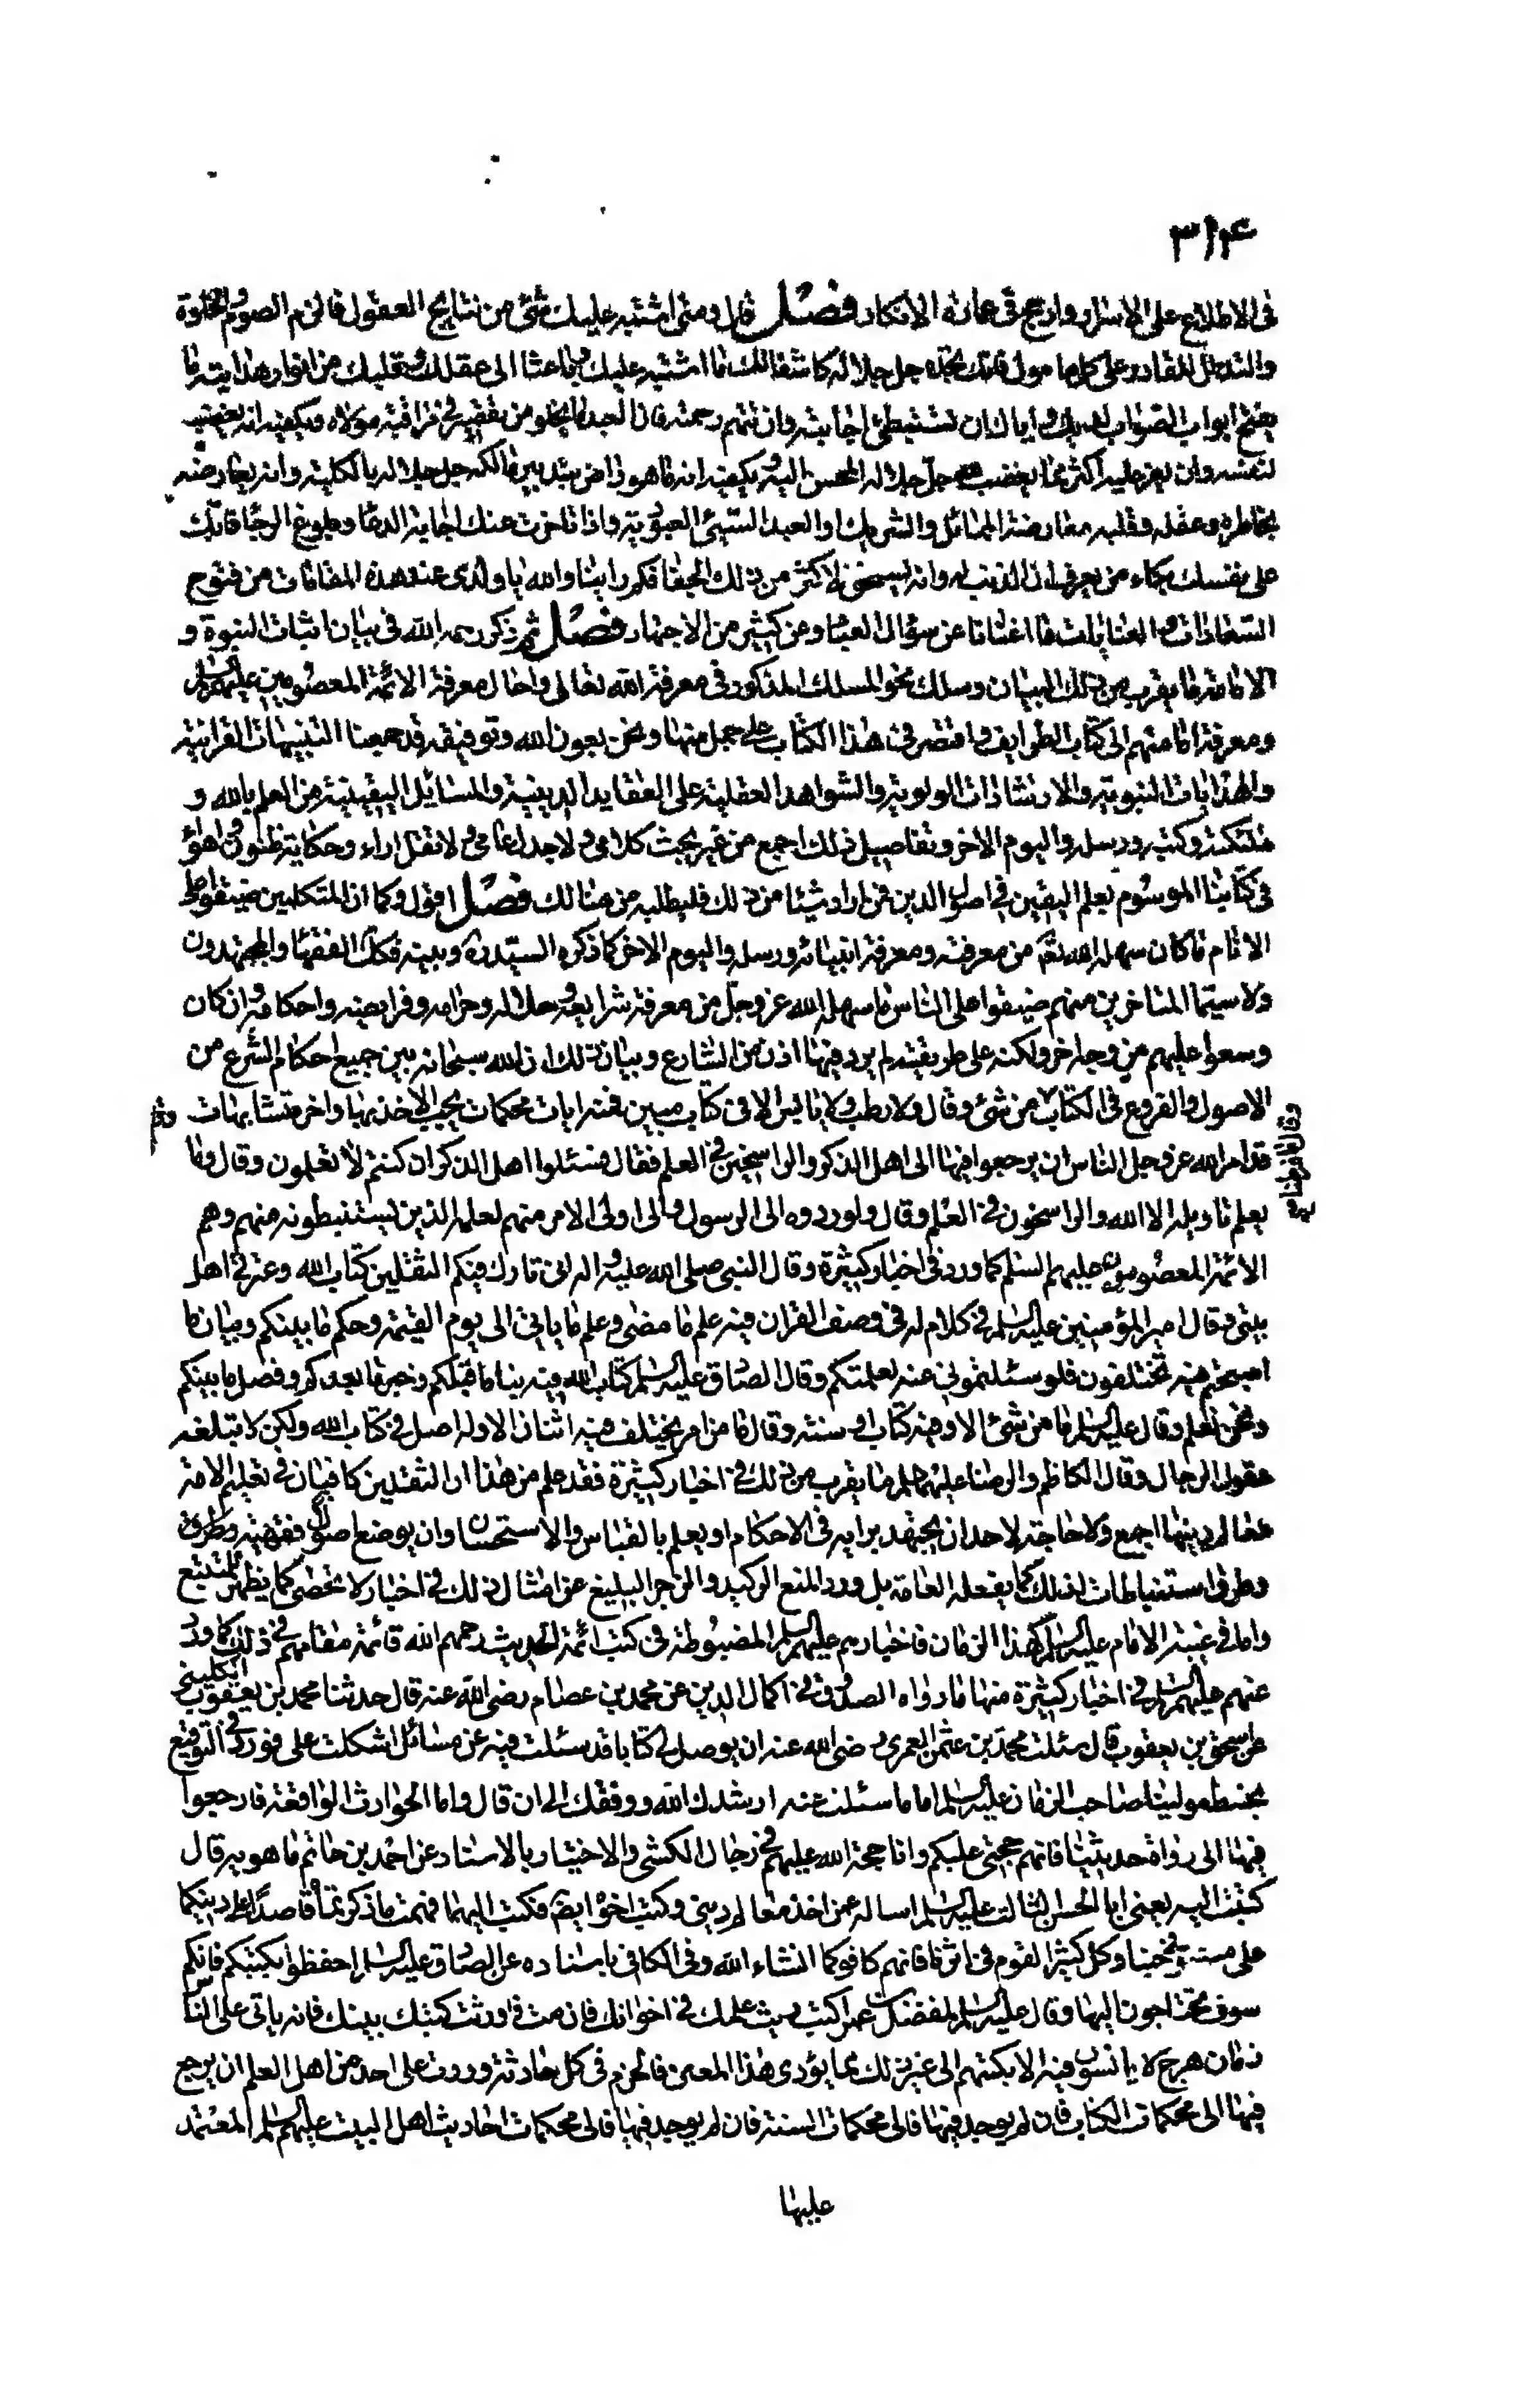 ٣١۴
فى الاطلاع على الاسرار وارجح فى عمارة الافكار فصل قال ومتى اشتبه عليك شئ من نتايج العقول فالزم الصوم والخلوة
والتذلل للقادر على كل مامول فانك تجده جل جلاله كاشفا لك ما اشتبه عليك وباعثا الى عقلك وقلبك من انوار هدايته ما
يفتح ابواب الصواب لديك واياك ان تستبطئ اجابته وان تتهم رحمته فان العبد ما يخلو من تقصير فى مراقبة مولاه ويكفيه انه يغضب
لنفسه ولمن يعز عليه اكثر مما يغضب لله جل جلاله المحسن اليه ويكفيه انه ما هو راض بتدبير مالكه جل جلاله بالكلية وانه يعارضه
بخاطره وعقله وقلبه معارضة المماثل والشريك او العبد السيئ العبودية واذا تاخرت عنك اجابة الدعا وبلوغ الرجا فابك
على نفسك بكاء من يعرف ان الذنب له وانه يستحق لاكثر من ذلك الجفا فكم راينا والله يا ولدى عند هذه المقامات من فتوح
السعادات والعنايات ما اغنانا عن سؤال العباد وعن كثير من الاجتهاد فصل ثم ذكر رحمه الله فى بيان اثبات النبوة و
الامامة ما يقرب من ذلك البيان وسلك نحو المسلك المذكور فى معرفة الله تعالى واحال معرفة الائمة المعصومين عليهم السلم
ومعرفة امامتهم الى كتاب الطرايف واقتصر فى هذا الكتاب على جمل منها ونحن بعون الله وتوفيقه قد جمعنا التنبيهات القرانية
والهدايات النبوية والارشادات الولوية والشواهد العقلية على العقايد الدينية والمسائل اليقينية من العلم بالله و
ملئكته وكتبه ورسله واليوم الاخر وتفاصيل ذلك اجمع من غير بحث كلامى ولا جدل عامى ولا نقل اراء وحكاية ظنون واهواء
فى كتابنا الموسوم بعلم اليقين فى اصول الدين فمن اراد شيئا من ذلك فليطلبه من هنالك فصل اقول وكما ان المتكلمين ضيقوا على
الانام ما كان سهله الله تعالى من معرفته ومعرفة انبيائه ورسله واليوم الاخر كما ذكره السيد ره وبينه فكك الفقها والمجتهدون
ولاسيما المتاخرين منهم ضيقوا على الناس ما سهله الله عز وجل من معرفة شرايعه وحلاله وحرامه وفرايضه واحكامه وان كان
وسعوا عليهم من وجه اخر ولكنه على طريقة لم يرد فيها اذن من الشارع وبيان ذلك ان الله سبحانه بين جميع احكام الشرع من
الاصول والفروع فى الكتاب من شئ وقال ولا رطب ولا يابس الا فى كتاب مبين فمنه ايات محكمات يجب الاخذ بها واخر متشابهات وقد
وقال ما فرطنا فيه
قد امر الله عز وجل الناس ان يرجعوا فيها الى اهل الذكر والراسخين فى العلم فقال فسئلوا اهل الذكر ان كنتم لا تعلمون وقال وما
يعلم تاويله الا الله والراسخون فى العلم وقال ولو ردوه الى الرسول والى اولى الامر منهم لعلمه الذين يستنبطونه منهم وهم
الائمة المعصومون عليهم السلم كما ورد فى اخبار كثيرة وقال النبى صلى الله عليه واله انى تارك فيكم الثقلين كتاب الله وعترتى اهل
بيتى وقال امير المؤمنين عليه السلم فى كلام له فى وصف القران فيه علم ما مضى وعلم ما ياتى الى يوم القيمة وحكم ما بينكم وبيان ما
اصبحتم فيه تختلفون فلو سئلتمونى عنه لعلمتكم وقال الصادق عليه السلم كتاب الله فيه نبا ما قبلكم وخبر ما بعدكم وفصل ما بينكم
ونحن نعلمه وقال عليه السلم ما من شئ الا وفيه كتاب او سنة وقال ما من امر يختلف فيه اثنان الا وله اصل فى كتاب الله ولكن لا تبلغه
عقول الرجال وقال الكاظم والرضا عليهما السلم ما يقرب من ذلك فى اخبار كثيرة فقد علم من هذا ان الثقلين كافيان فى تعليم الامة
معالم دينها اجمع ولا حاجة لاحد ان يجتهد برايه فى الاحكام او يعلم بالقياس والاستحسان وان يوضع اصول فقهية وطرق
وطرق استنباطات لذلك كما يفعله العامة بل ورد المنع الوكيد والزجر البليغ عن امثال ذلك فى اخبار لا تحصى كما يظهر للمتتبع
واما فى غيبة الامام عليه السلم كهذا الزمان فاخبارهم عليهم السلم المضبوطة فى كتب ائمة الحديث رحمهم الله قائمة مقامهم فى ذلك كما ورد
عنهم عليهم السلم فى اخبار كثيرة منها ما رواه الصدوق فى اكمال الدين عن محمد بن عصام رضى الله عنه قال حدثنا محمد بن يعقوب الكلينى
عن اسحق بن يعقوب قال سئلت محمد بن عثمن العمرى رضى الله عنه ان يوصل لى كتابا قد سئلت فيه عن مسائل اشكلت على فورد فى التوقيع
بخط مولينا صاحب الزمان عليه السلم اما ما سئلت عنه ارشدك الله ووفقك الى ان قال واما الحوادث الواقعة فارجعوا
فيها الى رواة حديثنا فانهم حجتى عليكم وانا حجة الله عليهم وفى رجال الكشى والاختيار بالاسناد عن احمد بن حاتم ماهويه قال
كتبت اليه يعنى ابا الحسن الثالث عليه السلم اساله عمن اخذ معالم دينى وكتب اخوه ايضا فكتب اليهما فهمت ما ذكرتما فاصمدا فى دينكما
على مسن فى حبنا وكل كثير القدم فى امرنا فانهم كافوكما انشاء الله وفى الكافى باسناده عن الصادق عليه السلم احفظوا بكتبكم فانكم
سوف تحتاجون اليها وقال عليه السلم للمفضل بن عمر اكتب وبث علمك فى اخوانك فان مت فاورث كتبك بنيك فانه ياتى على الناس
زمان هرج لا يانسون فيه الا بكتبهم الى غير ذلك مما يؤدى هذا المعنى فالحزم فى كل حادثة وردت على احد من اهل العلم ان يرجع
فيها الى محكمات الكتاب فان لم يوجد فيها فالى محكمات السنة فان لم يوجد فيها فالى محكمات احاديث اهل البيت عليهم السلم المعتمد
عليها